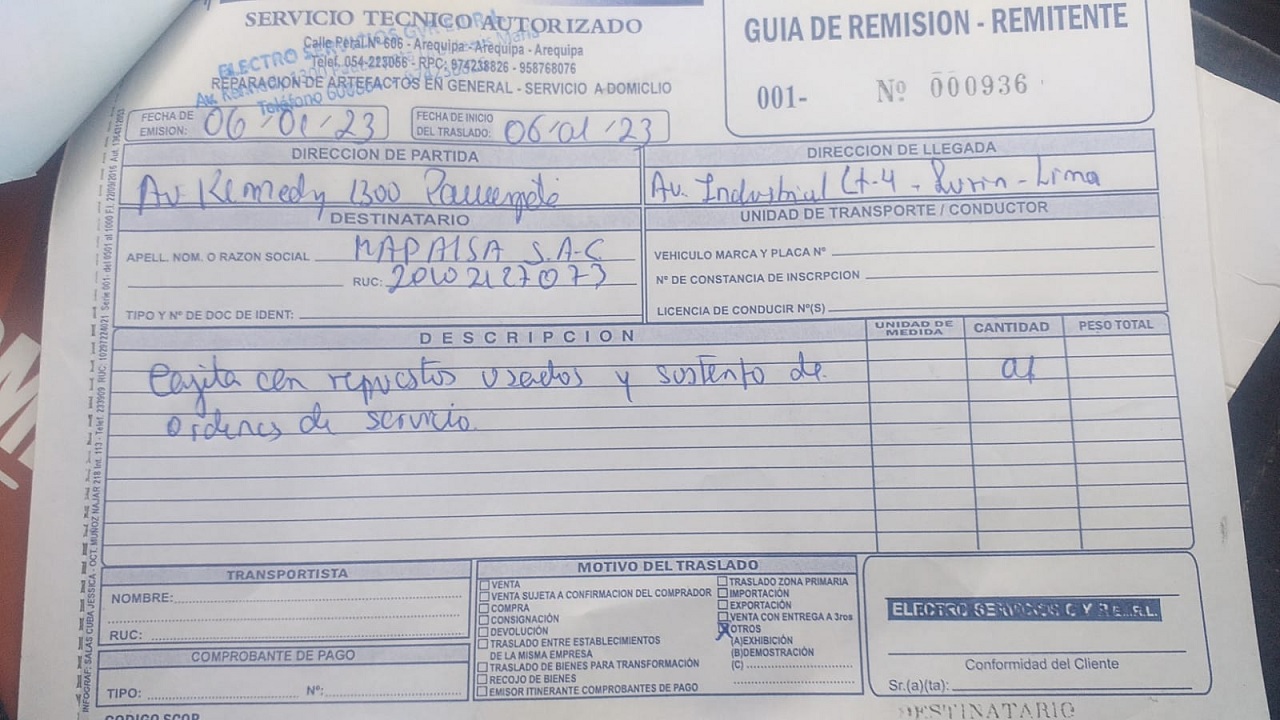 SERVICIO TECNICO AUTORIZADO
Calle Peral Nº 606 - Arequipa - Arequipa - Arequipa
Telef. 054-223066 - RPC: 974238826 - 958768076
REPARACION DE ARTEFACTOS EN GENERAL - SERVICIO A DOMICLIO
ELECTRO
Teléfono
GUIA DE REMISION - REMITENTE
001- Nº 000936
FECHA DE EMISION: 06/01/23
FECHA DE INICIO DEL TRASLADO: 06/01/23
DIRECCION DE PARTIDA
Av Kemedy 1300
DIRECCION DE LLEGADA
Av. Industrial Lt-4 - Lurin - Lima
DESTINATARIO
APELL. NOM. O RAZON SOCIAL MAPALSA S.A.C
RUC: 20102127073
TIPO Y Nº DE DOC DE IDENT:
UNIDAD DE TRANSPORTE / CONDUCTOR
VEHICULO MARCA Y PLACA Nº
Nº DE CONSTANCIA DE INSCRPCION
LICENCIA DE CONDUCIR Nº(S)
DESCRIPCION
UNIDAD DE MEDIDA
CANTIDAD
PESO TOTAL
Cajita con repuestos usados y sustento de 01
ordenes de servicio
TRANSPORTISTA
NOMBRE:
RUC:
COMPROBANTE DE PAGO
TIPO: Nº:
MOTIVO DEL TRASLADO
VENTA
VENTA SUJETA A CONFIRMACION DEL COMPRADOR
COMPRA
CONSIGNACIÓN
DEVOLUCIÓN
TRASLADO ENTRE ESTABLECIMIENTOS
DE LA MISMA EMPRESA
TRASLADO DE BIENES PARA TRANSFORMACIÓN
RECOJO DE BIENES
EMISOR ITINERANTE COMPROBANTES DE PAGO
TRASLADO ZONA PRIMARIA
IMPORTACIÓN
EXPORTACIÓN
VENTA CON ENTREGA A 3ros
X OTROS
(A)EXHIBICIÓN
(B)DEMOSTRACIÓN
(C)
ELECTRO SERVICIOS G Y R E.I.R.L.
Conformidad del Cliente
Sr.(a)(ta):
DESTINATARIO